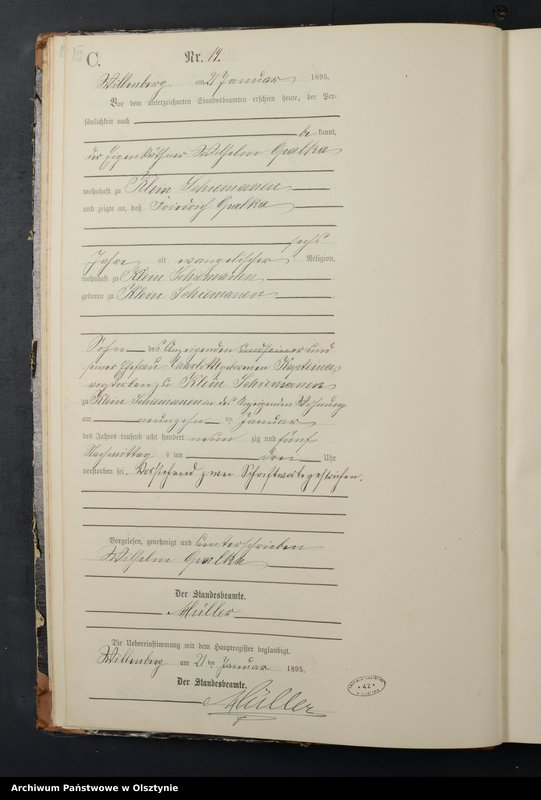 C.
Nr. 14.
Willenberg am 21 Januar 1895.
Vor dem unterzeichneten Standesbeamten erschien heute, der Per-
sönlichkeit nach
be kannt,
der Eigenkäthner Wilhelm
wohnhaft zu Klein Schiemanen
und zeigte an, daß Friedrich
sechs
Jahre alt evangelischer Religion,
wohnhaft zu Klein Schiemanen
geboren zu Klein Schiemanen
Sohn des Anzeigenden und
seiner Ehefrau geborenen
zu Klein Schiemanen
zu Klein Schiemanen in des Anzeigenden Wohnung
am neunzehn ten Januar
des Jahres tausend acht hundert neun zig und fünf
Nachmittag s um drei Uhr
verstorben sei. Vorstehend zwei Schriftworte gestrichen.
Vorgelesen, genehmigt und unterschrieben
Wilhelm
Der Standesbeamte.
Müller
Die Uebereinstimmung mit dem Hauptregister beglaubigt.
Willenberg am 21 ten Januar 1895.
Der Standesbeamte.
Müller
42
Archiwum Państwowe w Olsztynie